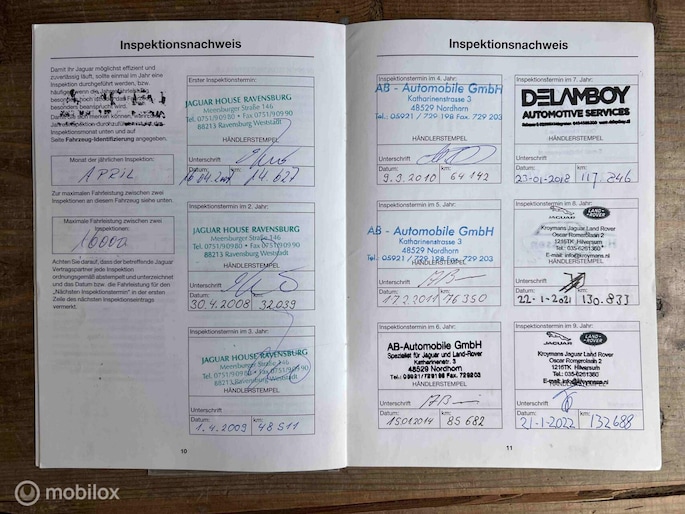 Inspektionsnachweis
Damit Ihr Jaguar möglichst effizient und
zuverlässig läuft, sollte einmal im Jahr eine
Inspektion durchgeführt werden, bzw.
Inspektionsmonat unten und auf
Seite Fahrzeug-Identifizierung angegeben.
Monat der jährlichen Inspektion:
APRIL
Zur maximalen Fahrleistung zwischen zwei
Inspektionen an diesem Fahrzeug siehe unten.
Maximale Fahrleistung zwischen zwei
Inspektionen:
16000
Achten Sie darauf, dass der betreffende Jaguar
Vertragspartner jede Inspektion
ordnungsgemäß abstempelt und unterzeichnet
und das Datum bzw. die Fahrleistung für den
"Nächsten Inspektionstermin" in der ersten
Zeile des nächsten Inspektionseintrags
vermerkt.
Erster Inspektionstermin:
JAGUAR HOUSE RAVENSBURG
Meersburger Straße 146
Tel. 0751/90980 • Fax 0751/90990
88213 Ravensburg Weststadt
HÄNDLERSTEMPEL
Unterschrift
Datum: km:
14.627
Inspektionstermin im 2. Jahr:
JAGUAR HOUSE RAVENSBURG
Meersburger Straße 146
Tel. 0751/90980 • Fax 0751/90990
88213 Ravensburg Weststadt
HÄNDLERSTEMPEL
Unterschrift
Datum: km:
30.4.2008 32.039
Inspektionstermin im 3. Jahr:
JAGUAR HOUSE RAVENSBURG
Meersburger Straße 146
Tel. 0751/90980 • Fax 0751/90990
88213 Ravensburg Weststadt
HÄNDLERSTEMPEL
Unterschrift
Datum: km:
1.4.2009 48511
10
Inspektionsnachweis
Inspektionstermin im 4. Jahr:
AB - Automobile GmbH
Katharinenstrasse 3
48529 Nordhorn
Tel.: 05921 / 729 198 Fax. 729 203
HÄNDLERSTEMPEL
Unterschrift
Datum: km:
9.9.2010 64142
Inspektionstermin im 5. Jahr:
AB - Automobile GmbH
Katharinenstrasse 3
48529 Nordhorn
Tel.: 05921 / 729 198 Fax. 729 203
HÄNDLERSTEMPEL
Unterschrift
Datum: km:
17.2.2011 76350
Inspektionstermin im 6. Jahr:
AB-Automobile GmbH
Spezialist für Jaguar und Land-Rover
Katharinenstr. 3
48529 Nordhorn
Tel.: 05921/729198 Fax. 729203
HÄNDLERSTEMPEL
Unterschrift
Datum: km:
15.01.2014 85682
Inspektionstermin im 7. Jahr:
DELAMBOY
AUTOMOTIVE SERVICES
HÄNDLERSTEMPEL
Unterschrift
Datum: km:
23-01-2018 117.846
Inspektionstermin im 8. Jahr:
JAGUAR LAND-ROVER
Kroymans Jaguar Land Rover
Oscar Romerolaan 2
1216TK Hilversum
Tel.: 035-6261360
E-mail: info@kroymans.nl
Unterschrift
Datum: km:
22-1-2021 130.833
Inspektionstermin im 9. Jahr:
JAGUAR LAND-ROVER
Kroymans Jaguar Land Rover
Oscar Romerolaan 2
1216TK Hilversum
Tel.: 035-6261360
E-mail: info@kroymans.nl
Unterschrift
Datum: km:
21-1-2022 132688
11
mobilox